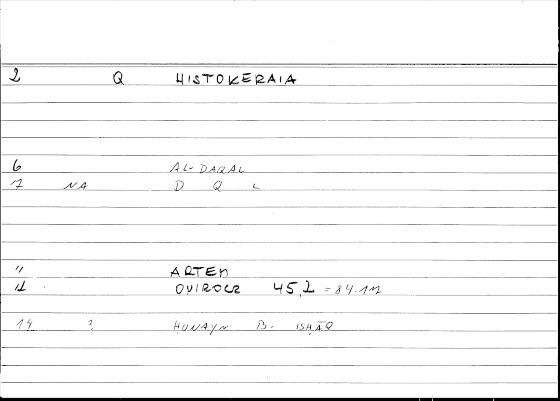 2 Q HISTOKERAIA
6 AL-DAQAL
7 NA D Q L
" ARTEM
11 OVIROCZ 45,2 = 84.12
14 ? ḤUNAYN B. ISḤĀQ